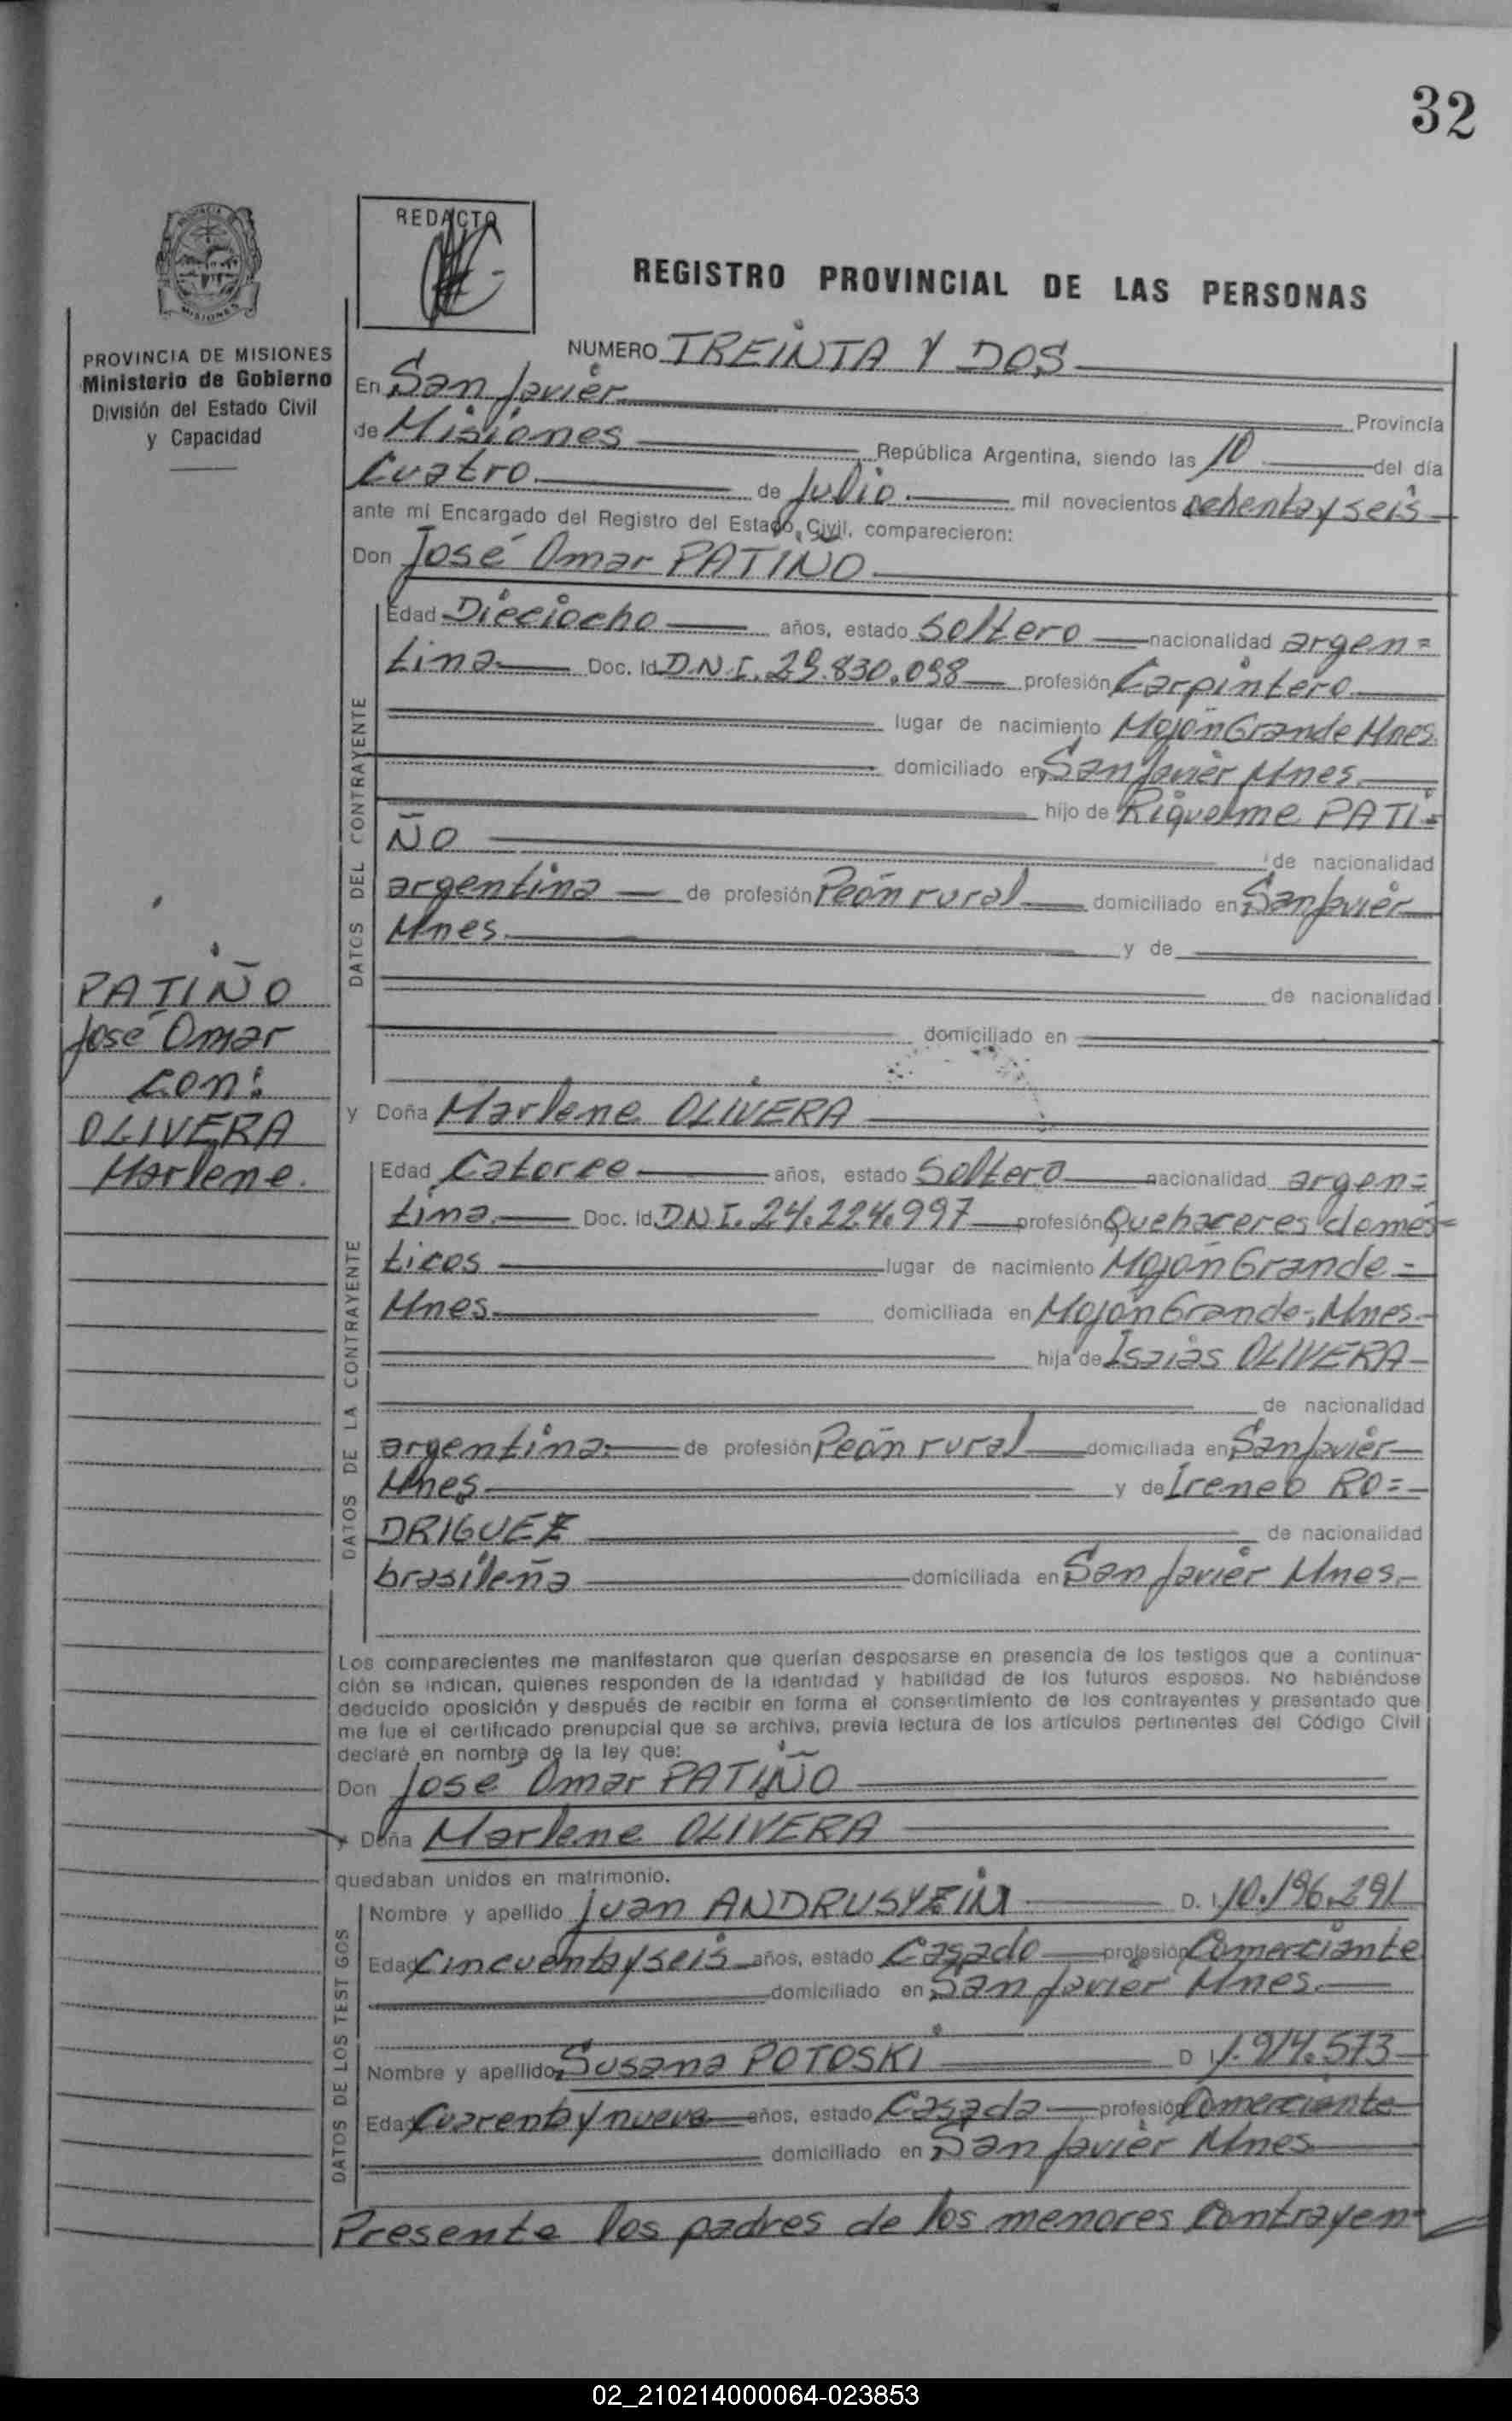 32
REDACTO
REGISTRO PROVINCIAL DE LAS PERSONAS
PROVINCIA DE MISIONES
Ministerio de Gobierno
División del Estado Civil
y Capacidad
NUMERO TREINTA Y DOS
En San Javier Provincia
de Misiones República Argentina, siendo las 10 del día
Cuatro de Julio mil novecientos ochenta y seis
ante mí Encargado del Registro del Estado Civil, comparecieron:
Don José Omar PATIÑO
DATOS DEL CONTRAYENTE
Edad Dieciocho años, estado Soltero nacionalidad argen=
tina Doc. Id. D.N.I. 29.830.098 profesión Carpintero
lugar de nacimiento Mojón Grande Mnes.
domiciliado en San Javier Mnes.
hijo de Riquelme PATI=
ÑO de nacionalidad
argentina de profesión Peón rural domiciliado en San Javier
Mnes. y de
de nacionalidad
domiciliado en
PATIÑO
José Omar
con:
OLIVERA
Marlene.
y Doña Marlene OLIVERA
DATOS DE LA CONTRAYENTE
Edad Catorce años, estado Soltera nacionalidad argen=
tina Doc. Id. D.N.I. 24.224.997 profesión Quehaceres domés=
ticos lugar de nacimiento Mojón Grande =
Mnes. domiciliada en Mojón Grande, Mnes.
hija de Isaías OLIVERA
de nacionalidad
argentina de profesión Peón rural domiciliada en San Javier
Mnes y de Ireneo RO=
DRIGUEZ de nacionalidad
brasileña domiciliada en San Javier Mnes.
Los comparecientes me manifestaron que querían desposarse en presencia de los testigos que a continua-
ción se indican, quienes responden de la identidad y habilidad de los futuros esposos. No habiéndose
deducido oposición y después de recibir en forma el consentimiento de los contrayentes y presentado que
me fue el certificado prenupcial que se archiva, previa lectura de los artículos pertinentes del Código Civil
declaré en nombre de la ley que:
Don José Omar PATIÑO
y Doña Marlene OLIVERA
quedaban unidos en matrimonio.
DATOS DE LOS TESTIGOS
Nombre y apellido Juan D. I. 10.196.291
Edad Cincuenta y seis años, estado Casado profesión Comerciante
domiciliado en San Javier Mnes.
Nombre y apellido Susana POTOSKI D I 1.914.573
Edad Cuarenta y nueve años, estado Casada profesión Comerciante
domiciliado en San Javier Mnes
Presente los padres de los menores Contrayen=
02_210214000064-023853